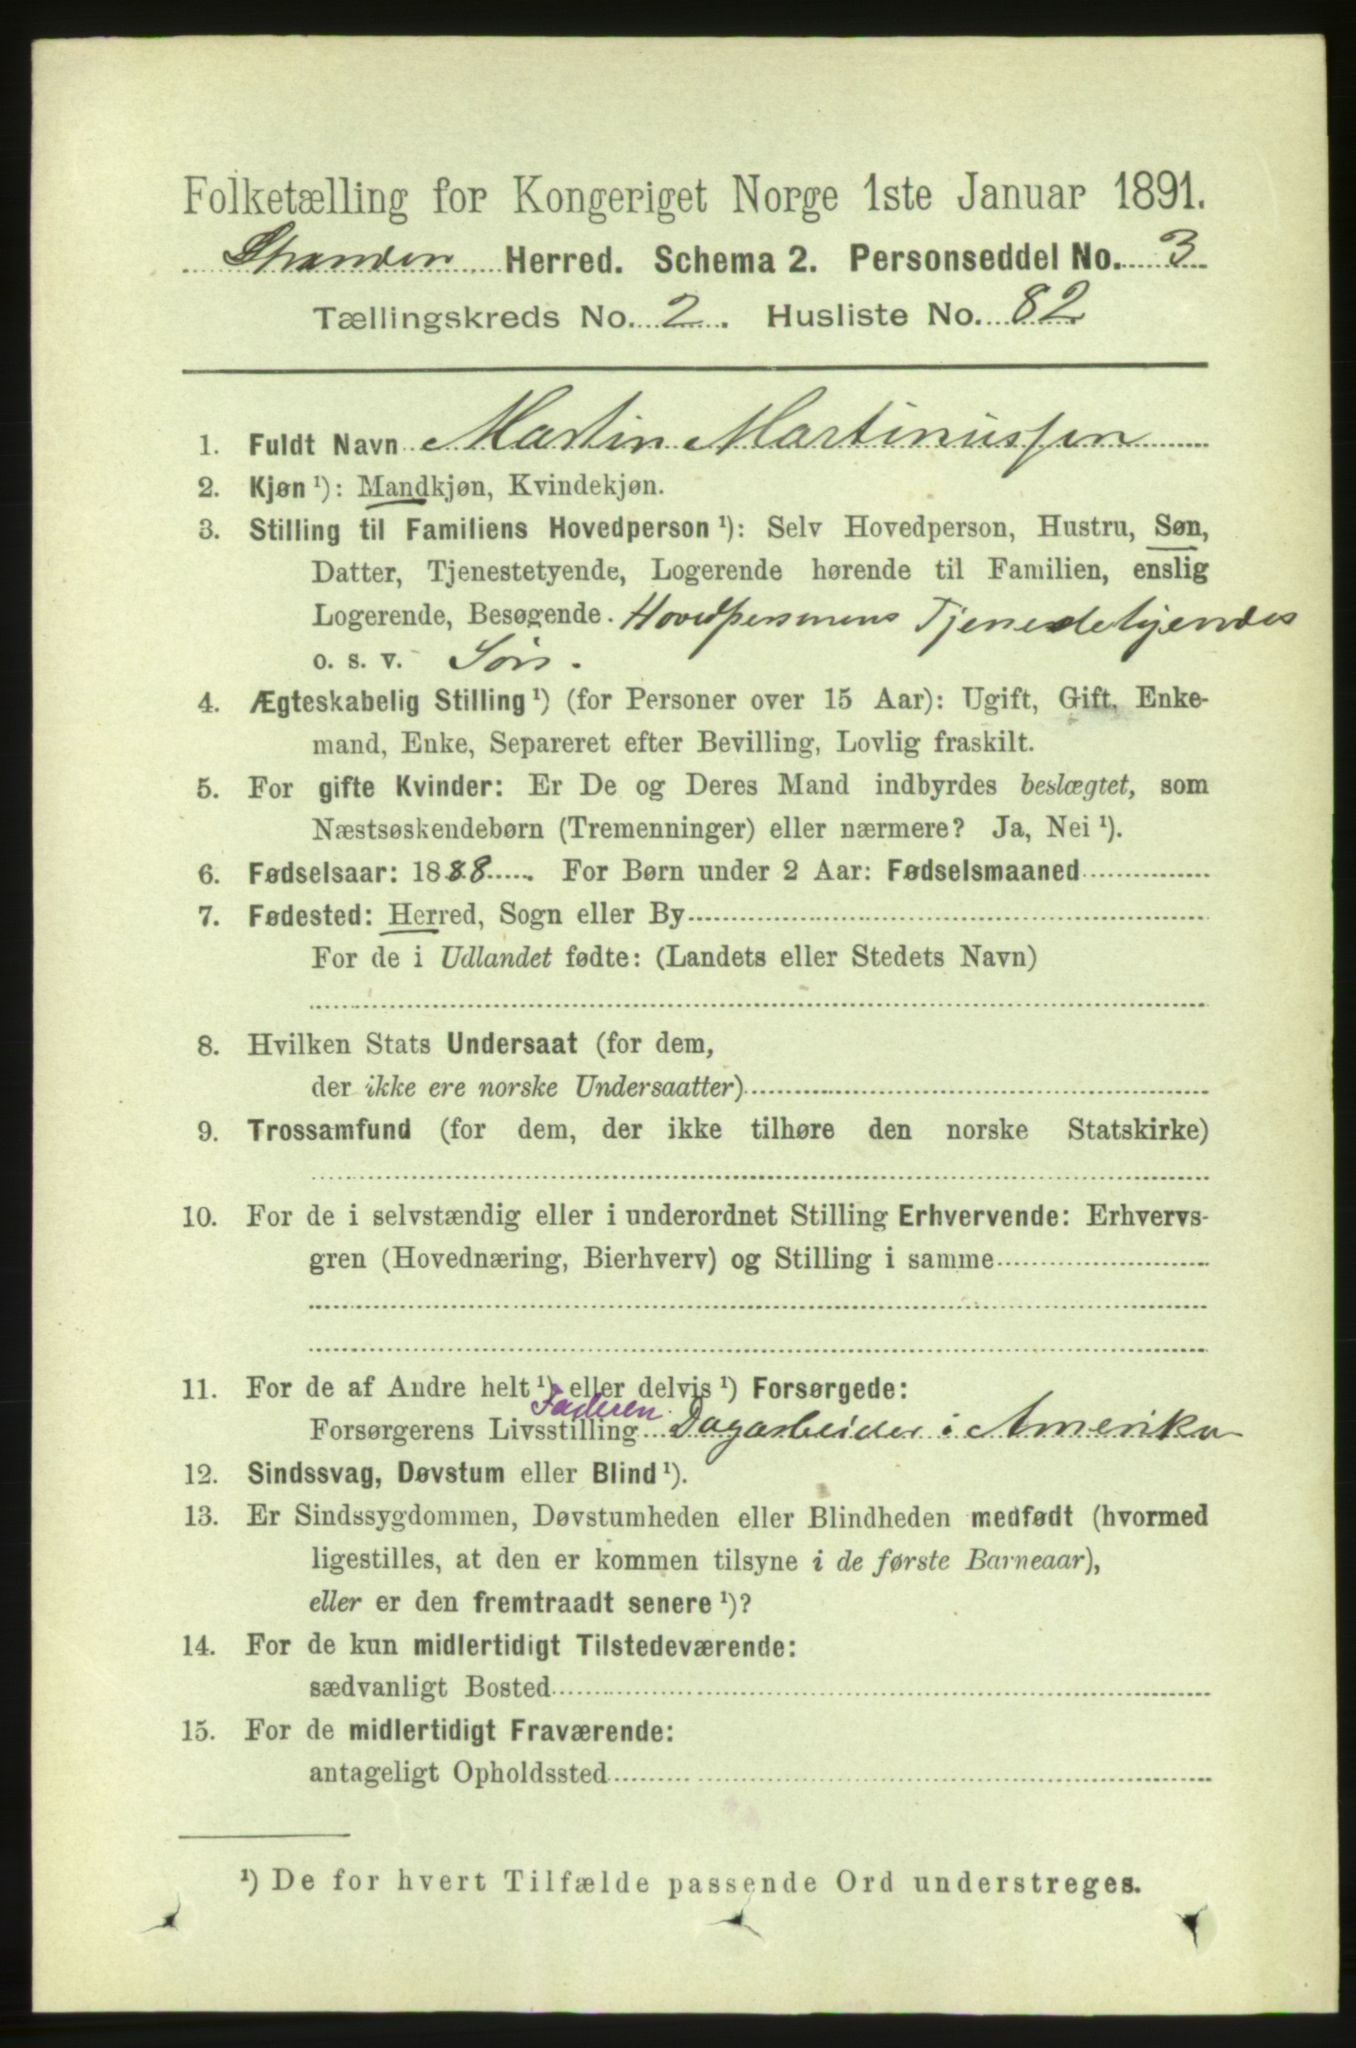 Folketælling for Kongeriget Norge 1ste Januar 1891.
Stranden Herred. Schema 2. Personseddel No. 3
Tællingskreds No. 2. Husliste No. 82
1. Fuldt Navn Martin Martinussen
2. Kjøn ¹): Mandkjøn, Kvindekjøn.
3. Stilling til Familiens Hovedperson ¹): Selv Hovedperson, Hustru, Søn,
Datter, Tjenestetyende, Logerende hørende til Familien, enslig
Logerende, Besøgende. Hovedpersonens Tjenestetyendes
o. s. v. Søn.
4. Ægteskabelig Stilling ¹) (for Personer over 15 Aar): Ugift, Gift, Enke-
mand, Enke, Separeret efter Bevilling, Lovlig fraskilt.
5. For gifte Kvinder: Er De og Deres Mand indbyrdes beslægtet, som
Næstsøskendebørn (Tremenninger) eller nærmere? Ja, Nei ¹).
6. Fødselsaar: 1888. For Børn under 2 Aar: Fødselsmaaned
7. Fødested: Herred, Sogn eller By
For de i Udlandet fødte: (Landets eller Stedets Navn)
8. Hvilken Stats Undersaat (for dem,
der ikke ere norske Undersaatter)
9. Trossamfund (for dem, der ikke tilhøre den norske Statskirke)
10. For de i selvstændig eller i underordnet Stilling Erhvervende: Erhvervs-
gren (Hovednæring, Bierhverv) og Stilling i samme
11. For de af Andre helt ¹) eller delvis ¹) Forsørgede:
Faderen
Forsørgerens Livsstilling Dagarbeider i Amerika
12. Sindssvag, Døvstum eller Blind ¹).
13. Er Sindssygdommen, Døvstumheden eller Blindheden medfødt (hvormed
ligestilles, at den er kommen tilsyne i de første Barneaar),
eller er den fremtraadt senere ¹)?
14. For de kun midlertidigt Tilstedeværende:
sædvanligt Bosted
15. For de midlertidigt Fraværende:
antageligt Opholdssted
¹) De for hvert Tilfælde passende Ord understreges.